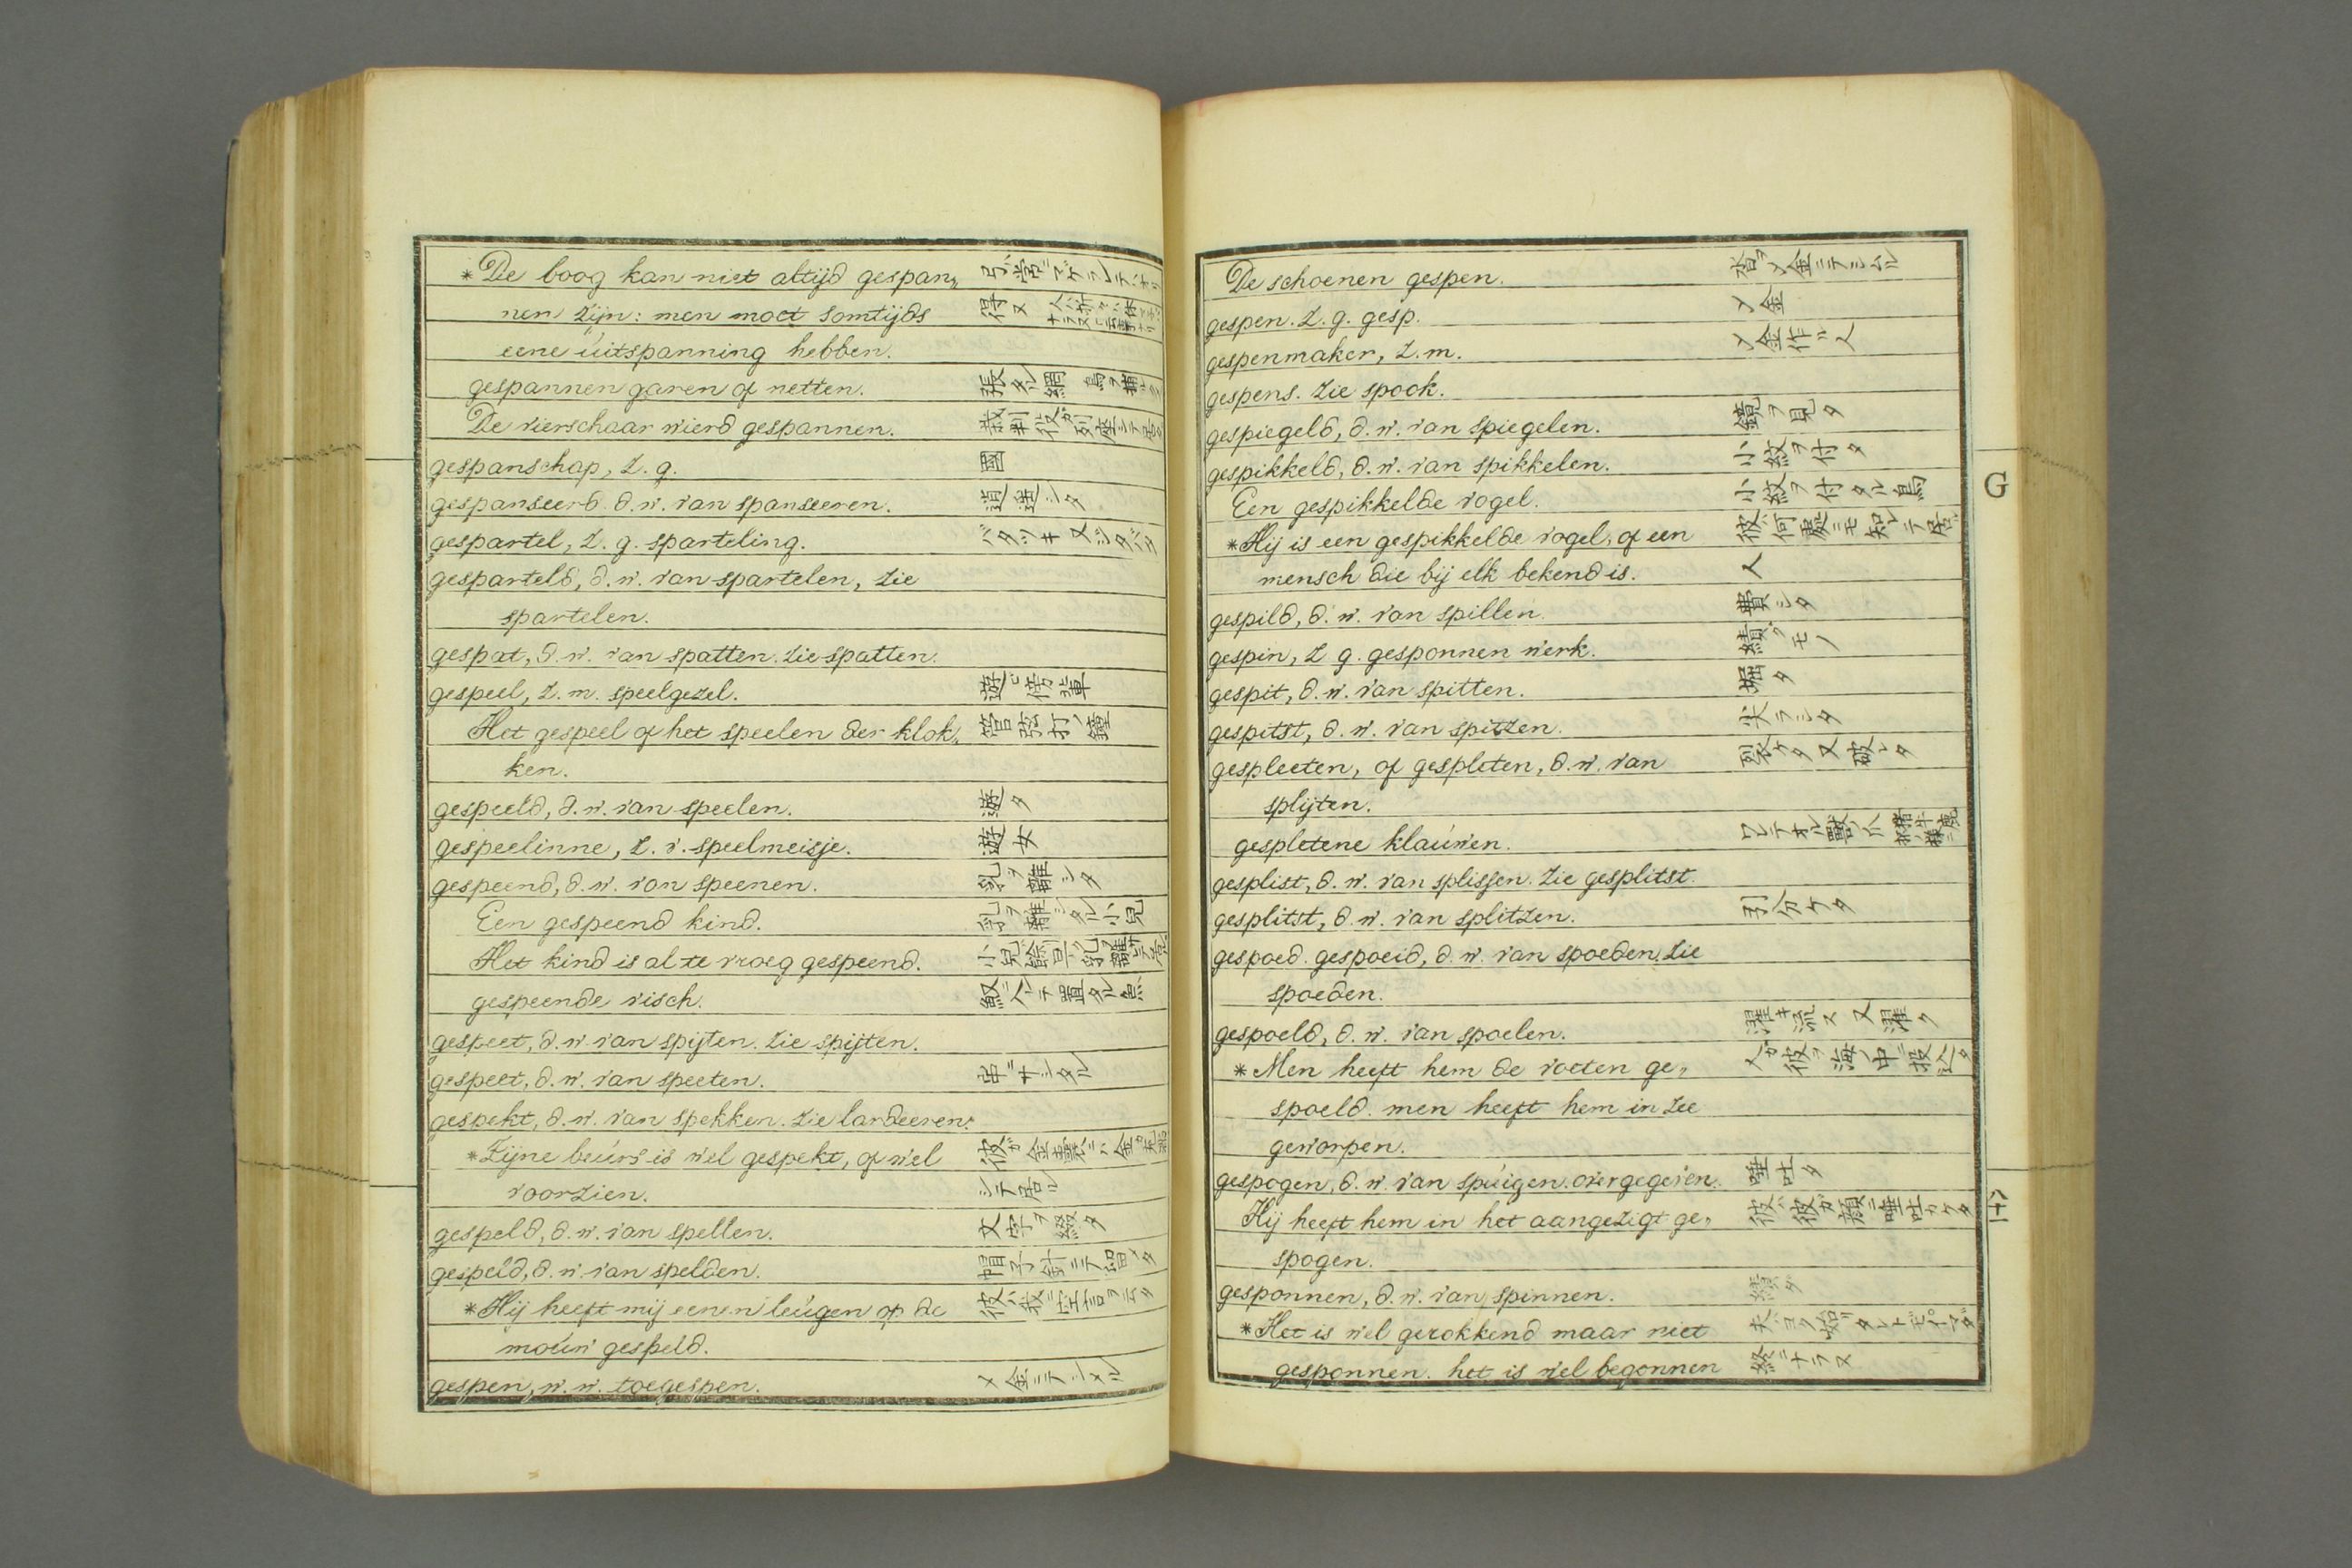 *De boog kan niet altijd gespan„
nen zijn: men moet somtijds 得ヌ
eene úitspanning hebben.
gespannen garen of netten. 張タル網 鳥ヲ捕ル
De vierschaar wierd gespannen. 裁判役ガ列座シテ居
gespanschap, z. g. 國
gespanseerd. d. w. van spanseeren. 逍遥シタ
gespartel, z. g. sparteling. バタツキ又ジタバタ
gesparteld, d. w. van spartelen, zie
spartelen.
gespat, d. w. van spatten. zie spatten.
gespeel, z. m. speelgezel. 遊ビ傍輩
Het gespeel of het speelen der klok„ 管弦打ノ鐘
ken.
gespeeld, d. w. van speelen. 遊タ
gespeelinne, z. v. speelmeisje. 遊女
gespeend, d. w. van speenen. 乳ヲ離シタ
Een gespeend kind. 乳ヲ離シタル小兒
Het kind is al te vroeg gespeend.
gespeende visch.
gespeet, d. w. van spijten. zie spijten.
gespeet, d. w. van speeten. 串ニサシタル
gespekt, d. w. van spekken. zie lardeeren.
*Zijne beúrs is wel gespekt, of wel
voorzien. シテ居ル
gespeld, d. w. van spellen. 文字ヲ綴タ
gespeld, d. w. van spelden. 帽子針ニテ留メタ
*Hij heeft mij eenen leúgen op de 彼ハ我ニ空言ヲ云タ
moúw gespeld.
gespen, w. w. toegespen. 〆金ニテシメル
De schoenen gespen. 沓ヲ〆金ニテシムル
gespen. z. g. gesp. 〆金
gespenmaker, z. m. 〆金作ル人
gespens. zie spook.
gespiegeld, d. w. van spiegelen. 鏡ヲ見タ
gespikkeld, d. w. van spikkelen. 小紋ヲ付タ
Een gespikkelde vogel. 小紋ヲ付タル鳥
*Hij is een gespikkelde vogel, of een 彼ハ何處ニモ知レテ居ル
mensch die bij elk bekend is. 人
gespild, d. w. van spillen. 費シタ
gespin, z g. gesponnen werk. 績グモノ
gespit, d. w. van spitten. 堀タ
gespitst, d. w. van spitzen. 尖ラシタ
gespleeten, of gespleten, d. w. van 裂ケタ又破レタ
splijten.
gespletene klaúwen. ワレテオル獸ノ爪
gesplist, d. w. van splissen. zie gesplitst.
gesplitst, d. w. van splitzen. 引分ケタ
gespoed. gespoeid, d. w. van spoeden, zie
spoeden.
gespoeld, d. w. van spoelen. 濯キ流ス又濯ク
*Men heeft hem de voeten ge„ 人ガ彼ヲ海ノ中ニ投込タ
spoeld. men heeft hem in zee
geworpen.
gespogen, d. w. van spúigen. overgegeven. 唾吐タ
Hij heeft hem in het aangezigt ge„ 彼ハ彼ガ顔ニ唾吐カケタ
spogen.
gesponnen, d. w. van spinnen. 績タ
*Het is wel gerokkend maar niet
gesponnen. het is wel begonnen 終ニナラヌ
G